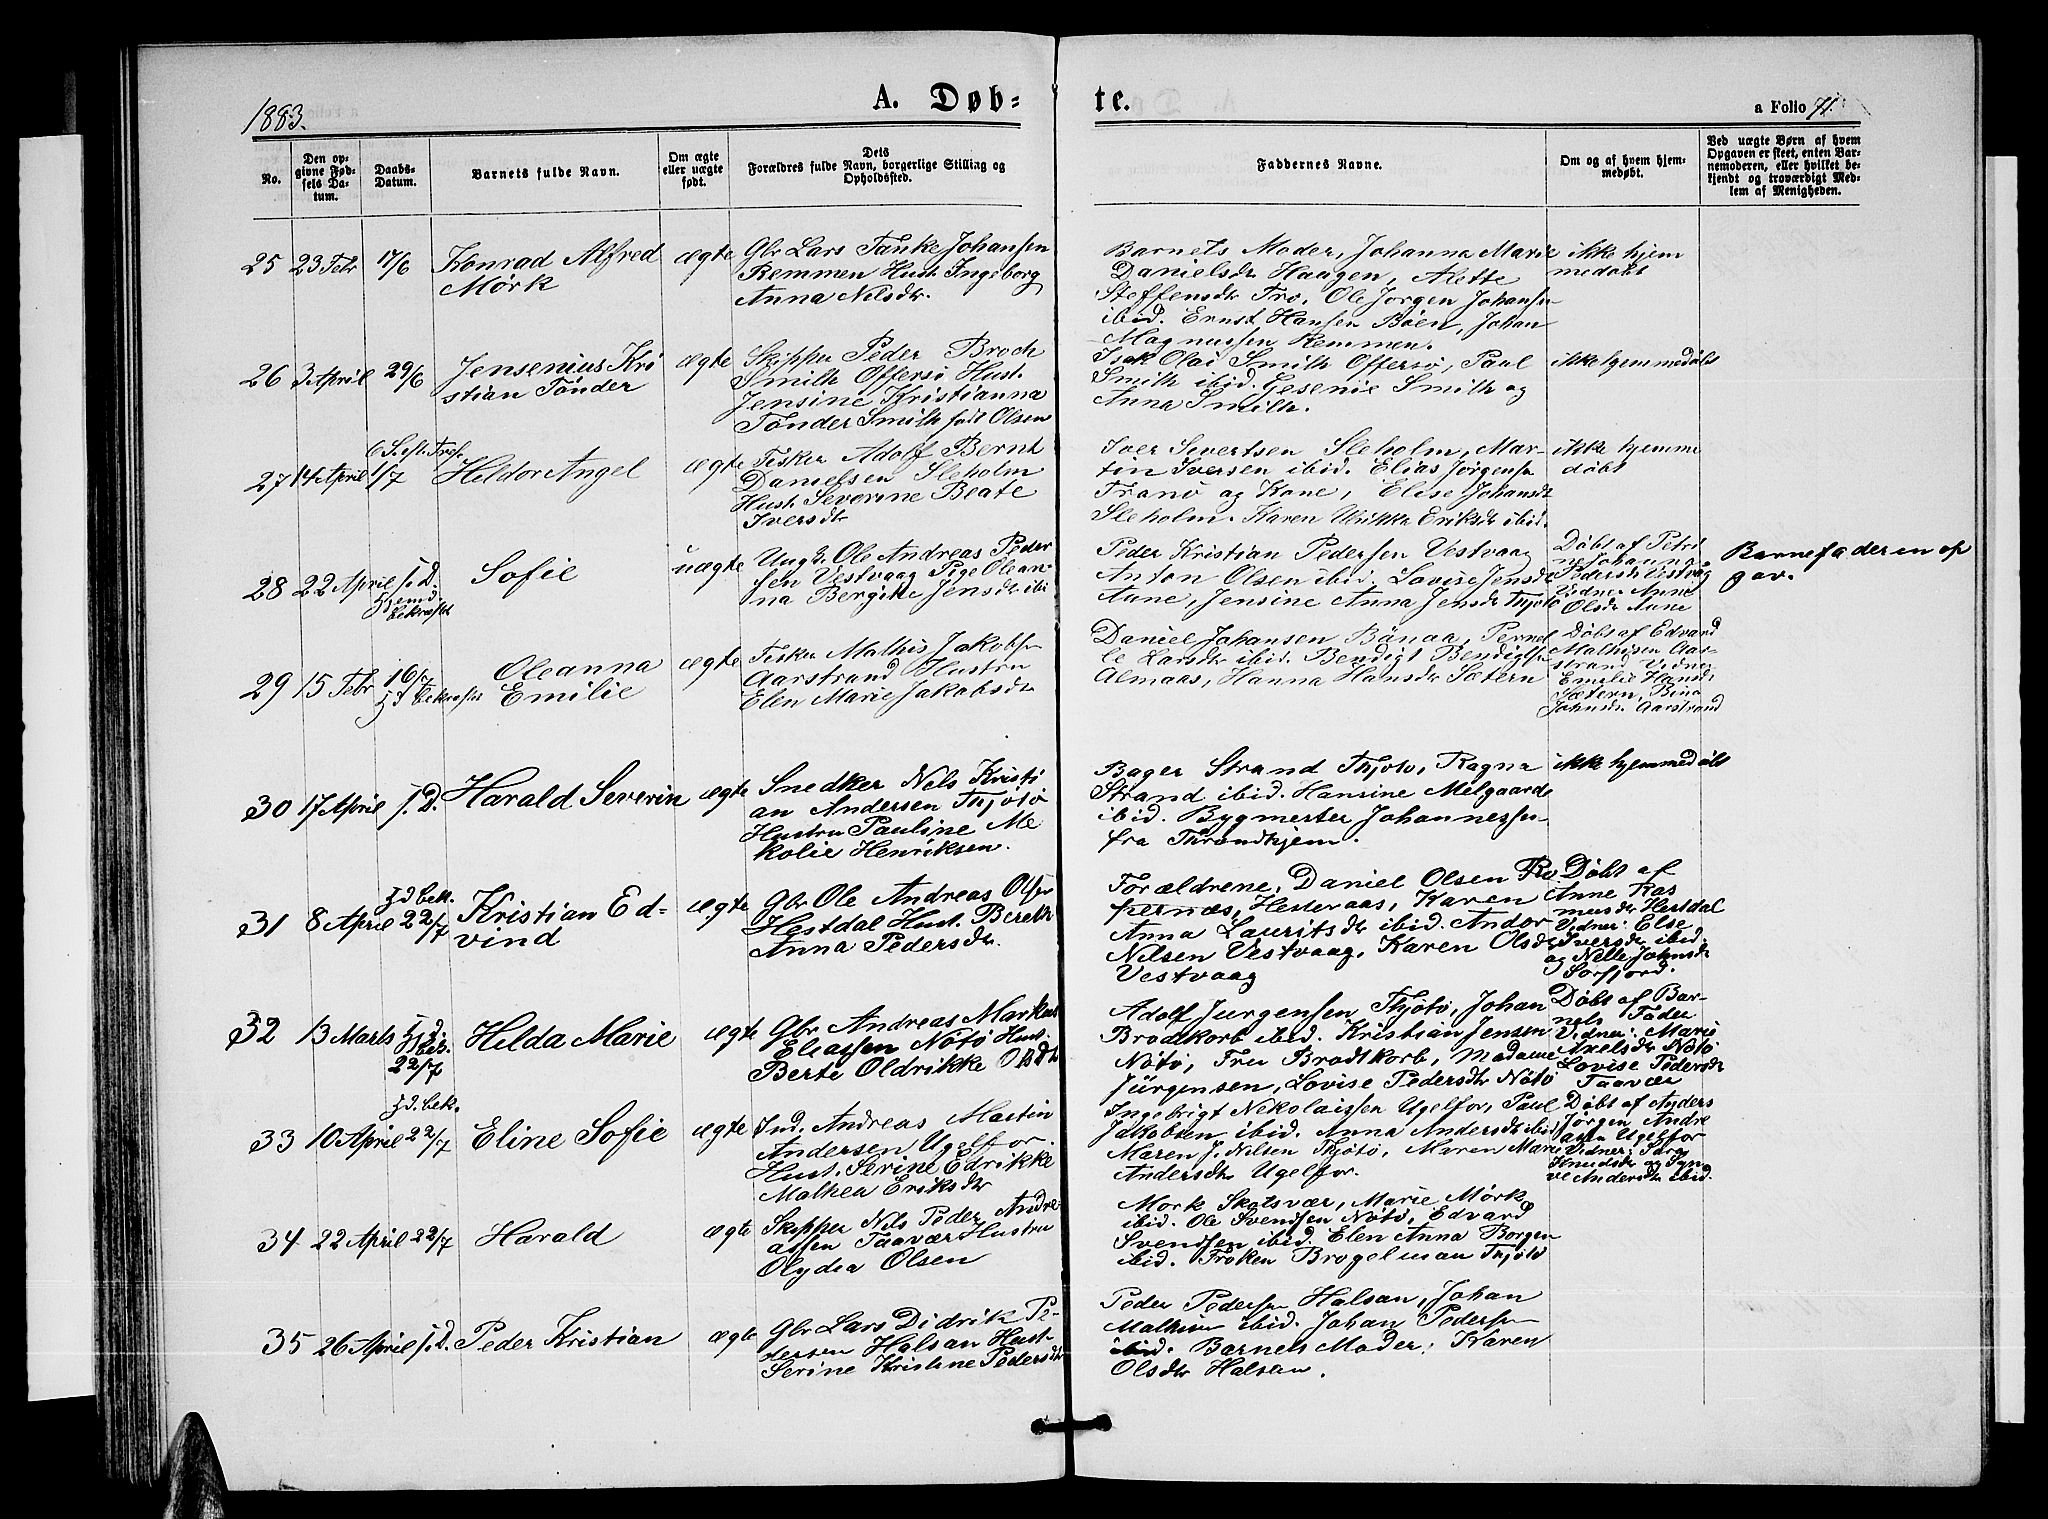 1883.
A. Døb-
te.
a Folio 71.
No.
Den op-
givne Fød-
sels Da-
tum.
Daabs-
Datum.
Barnets fulde Navn.
Om ægte
eller uægte
født.
Dets
Forældres fulde Navn, borgerlige Stilling og
Opholdssted.
Faddernes Navne.
Om og af hvem hjem-
medøbt.
Ved uægte Børn af hvem
Opgaven er skeet, enten Bar-
nemoderen, eller hvilket be-
kjendt og troværdigt Med-
lem af Menigheden.
25 23 Febr 17/6
Konrad Alfred
Mörk
ægte
Gbr Lars Tanke Johansen
Remmen Hust. Ingeborg
Anna Nilsdtr.
Barnets Moder, Johanna Marie
Danielsdtr Haagen, Alette
Steffensdtr Tro, Ole Jörgen Johansen
ibid. Ernst Hansen Böen, Johan
Magnussen Remmen.
ikke hjem
medöbt
26 3 April 29/6
Jensenius Kri
stian Tönder
ægte
Skipper Peder Broch
Smith Offersö Hust.
Jensine Kristianna
Tönder Smith født Olsen
Isak Olai Smith Offersö, Paul
Smith ibid. Gesenie Smith og
Anna Smith.
ikke hjemmedöbt
27 14 April
6 S. eft. Tref.
1/7
Heldor Angel
ægte
Fisker Adolf Bernt
Danielsen Sleholm
Hust. Severine Beate
Iversdtr
Iver Severtsen Sleholm, Mar-
tin Iversen ibid. Elias Jörgensen
Tranö og Kone, Elise Johansdt
Sleholm. Karen Ulrikka Eriksdtr ibid.
ikke hjemme
döbt
28 22 April s. D.
Hjemd.
bekræftet
Sofie
uægte
Ungk. Ole Andreas Peder
sen Vestvaag Pige Olean-
na Bergitte Jensdtr ibi
Peder Kristian Pedersen Vestvaag
Anton Olsen ibid. Lovise Jensdtr
Aune, Jensine Anna Jensdtr Thjötö
Döbt af Petri
ne Johanna
Pedersdt Vestvag
Vidne: Anne
Olsdtr Aune
Barnefaderen op
gav.
29 15 Febr 16/7
Hjd bekræftet
Oleanna
Emilie
ægte
Fisker Mathis Jakobsen
Aarstrand Hustru
Elen Marie Jakobsdtr
Daniel Johansen Bönaa, Pernel
le Larsdtr ibid. Bendigt Bendigtsen
Almaas, Hanna Hansdtr Sætern
Döbt af Edvard
Mathisen Aar-
strand Vidne
Emilie Hansdt
Sætern, Bina
Johnsdtr Aarstrand
30 17 April s. D.
Harald Severin
ægte
Snedker Nels Kristi
an Andersen Thjötö
Hustru Pauline Me
kolie Henriksen.
Bager Strand Thjötö, Ragna
Strand ibid. Hansine Melgaard
ibid. Bygmester Johannessen
fra Throndhjem.
ikke hjemmedöbt
31 8 April
Hjd bek.
22/7
Kristian Ed-
vind
ægte
Gbr Ole Andreas Olsen
Hestdal Hust. Bereth
Anna Pedersdtr.
Forældrene, Daniel Olsen Re
pernæs, Hestevaas, Karen
Anna Lauritsdtr ibid. Andor
Nilsen Vestvaag, Karen Olsdtr
Vestvaag
Döbt af
Anne Ras
musdtr Hestdal
Vidner: Else
Iversdtr ibid.
og Nelle Johnsdtr
Sörfjord.
32 13 Marts
Hjd.
bek.
22/7
Helda Marie
ægte
Gbr Andreas Markus
Eliassen Nötö Hust.
Berte Oldrikke Olsdtr
Adolf Jürgensen Thjötö, Johan
Brodtkorb ibid. Kristian Jensen
Nötö, Fru Brodtkorb, Madame
Jürgensen, Lovise Pedersdtr Nötö
Döbt af Bar-
nets Fader
Vidner: Marie
Axelsdtr Nötö
Lovise Pedersdtr
Taavær
33 10 April
Hjd. bek.
22/7
Eline Sofie
ægte
Ind. Andreas Martin
Andersen Ugelfor.
Hust. Serine Edrikke
Mathea Eriksdtr
Ingebrigt Nekolaissen Ugelfor, Paul
Jakobsen ibid. Anna Andersdt ibid,
Maren J. Nilsen Thjötö, Maren Marie
Andersdtr Ugelfor.
Döbt af Anders
Jörgen Andre
asen Ugelfor
Vidner: Sara
Knudsdtr og Syn
ve Andersdtr ibid.
34 22 April 22/7
Harald
ægte
Skipper Nils Peder Andre-
assen Taavær Hustru
Olydia Olsen
Mörk Skotsvær, Marie Mörk
ibid. Ole Svendsen Nötö, Edvard
Svendsen ibid. Elen Anna Borgen
ibid. Fröken Brogelman Thjötö
35 26 April s. D.
Peder Kristian
ægte
Gbr Lars Didrik Pe-
dersen Halsan Hust.
Serine Kristine Pedersdtr
Peder Pedersen Halsan, Johan
Mathisen ibid. Johan Pedersen
ibid. Barnets Moder; Karen
Olsdtr Halsan.